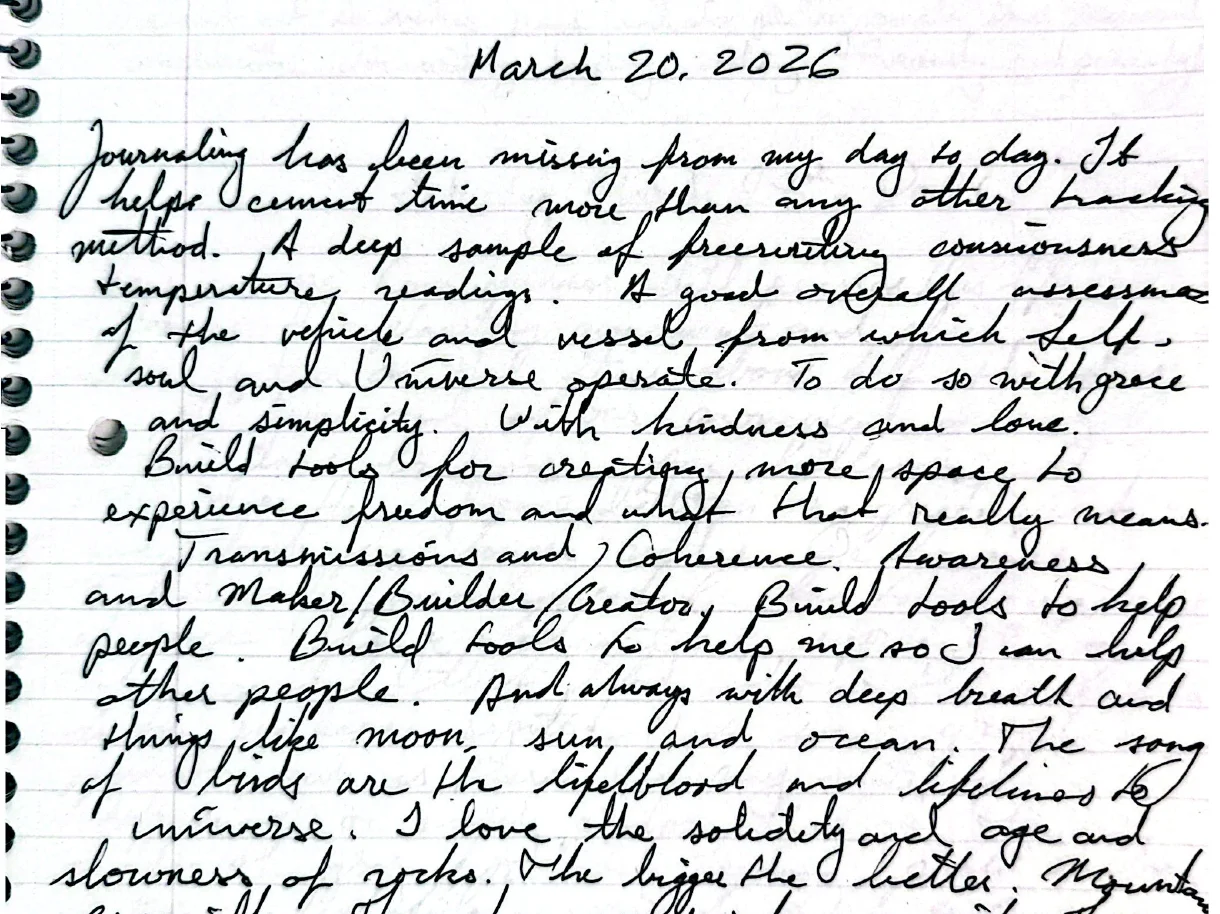 March 20, 2026
Journaling has been missing from my day to day. It
helps cement time more than any other tracking
method. A deep sample of freewriting consciousness
temperature readings. A good overall assessment
of the vehicle and vessel from which Self,
soul and Universe operate. To do so with grace
and simplicity. With kindness and love.
Build tools for creating more space to
experience freedom and what that really means.
Transmissions and Coherence. Awareness
and Maker/Builder/Creator. Build tools to help
people. Build tools to help me so I can help
other people. And always with deep breath and
things like moon, sun and ocean. The song
of birds are the lifelblood and lifelines to
universe. I love the solidity and age and
slowness of rocks. The bigger the better. Mountain